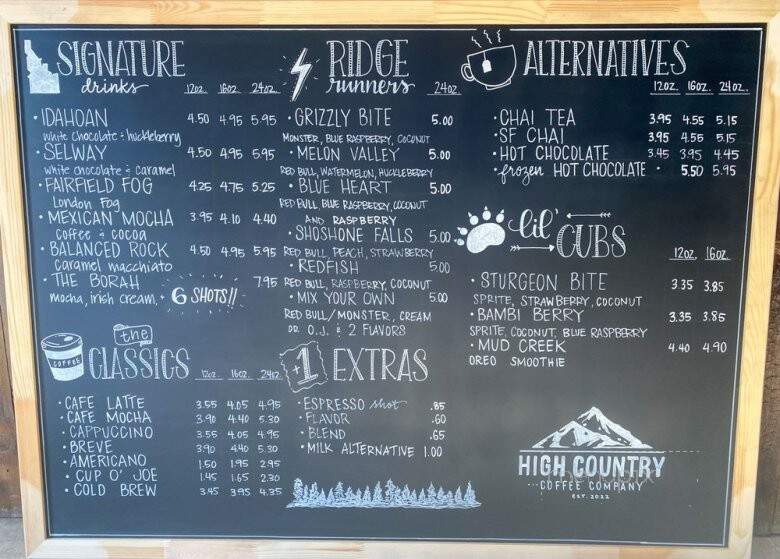 SIGNATURE
drinks 12oz. 16oz. 24oz.
• IDAHOAN 4.50 4.95 5.95
white chocolate + huckleberry
• SELWAY 4.50 4.95 5.95
white chocolate + caramel
• FAIRFIELD FOG 4.25 4.75 5.25
London Fog
• MEXICAN MOCHA 3.95 4.10 4.40
coffee + cocoa
• BALANCED ROCK 4.50 4.95 5.95
Caramel macchiato
• THE BORAH 7.95
mocha, irish cream, + 6 SHOTS!!
the
CLASSICS 12oz. 16oz. 24oz.
COFFEE
• CAFE LATTE 3.55 4.05 4.95
• CAFE MOCHA 3.90 4.40 5.30
• CAPPUCCINO 3.55 4.05 4.95
• BREVE 3.90 4.40 5.30
• AMERICANO 1.50 1.95 2.95
• CUP O' JOE 1.45 1.65 2.30
• COLD BREW 3.45 3.95 4.35
RIDGE
runners 24oz.
• GRIZZLY BITE 5.00
MONSTER, BLUE RASPBERRY, COCONUT
• MELON VALLEY 5.00
RED BULL, WATERMELON, HUCKLEBERRY
• BLUE HEART 5.00
RED BULL, BLUE RASPBERRY, COCONUT
AND RASPBERRY
• SHOSHONE FALLS 5.00
RED BULL, PEACH, STRAWBERRY
• REDFISH 5.00
RED BULL, RASPBERRY, COCONUT
• MIX YOUR OWN 5.00
RED BULL/MONSTER, CREAM
OR O.J. + 2 FLAVORS
+1 EXTRAS
• ESPRESSO shot .85
• FLAVOR .60
• BLEND .65
• MILK ALTERNATIVE 1.00
ALTERNATIVES
12oz. 16oz. 24oz.
• CHAI TEA 3.95 4.55 5.15
• SF CHAI 3.95 4.55 5.15
• HOT CHOCOLATE 3.45 3.95 4.45
• frozen HOT CHOCOLATE • 5.50 5.95
lil' CUBS
12oz. 16oz.
• STURGEON BITE 3.35 3.85
SPRITE, STRAWBERRY, COCONUT
• BAMBI BERRY 3.35 3.85
SPRITE, COCONUT, BLUE RASPBERRY
• MUD CREEK 4.40 4.90
OREO SMOOTHIE
HIGH COUNTRY
COFFEE COMPANY
EST. 2022